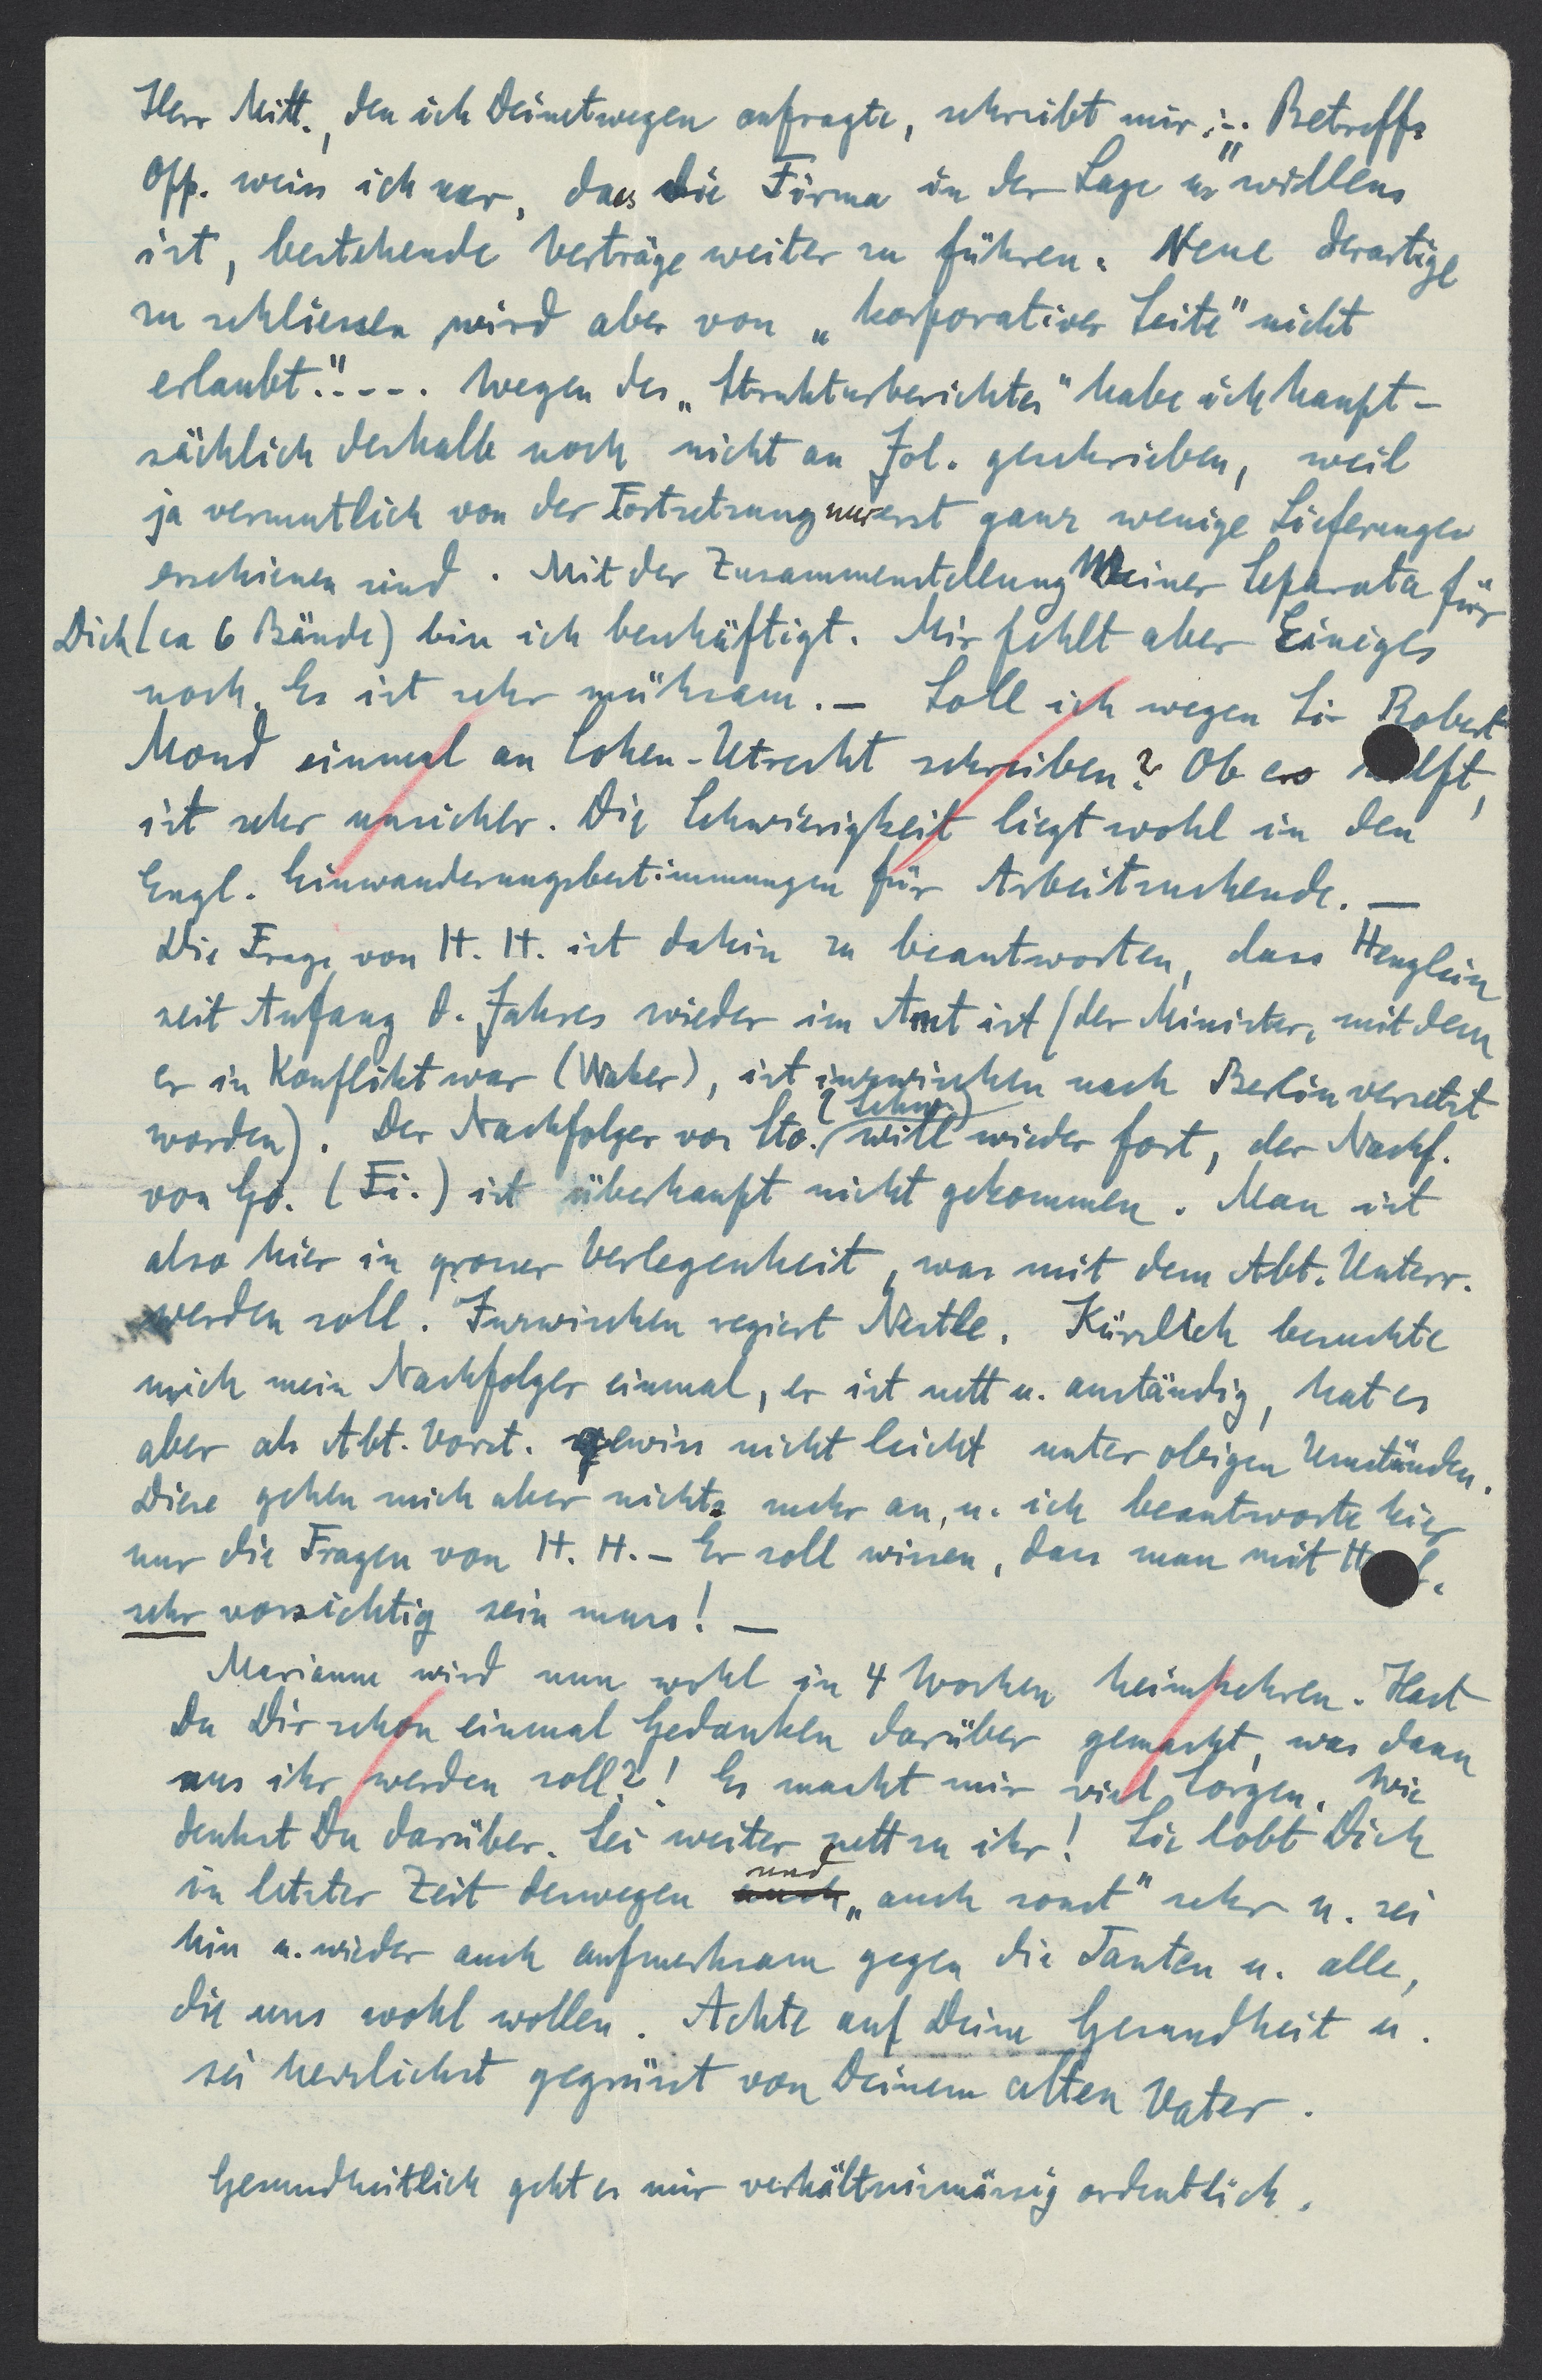 Herr Mitt., den ich Deinetwegen anfragte, schreibt mir:-. Betreffs
"Opp. weiss ich nur, dass die Firma in der Lage u. willens
ist, bestehende Verträge weiter zu führen. Neue derartige
zu schliessen wird aber von „korporativer Seite" nicht
erlaubt."---. Wegen des „Strukturberichtes" habe ich haupt-
sächlich deshalb noch nicht an Jol. geschrieben, weil
ja vermutlich von der Fortsetzung nur erst ganz wenige Lieferungen
erschienen sind. Mit der Zusammenstellung Meiner Separata für
Dich (ca 6 Bände) bin ich beschäftigt. Mir fehlt aber Einiges
noch. Es ist sehr mühsam. - Soll ich wegen Sir Robert
Mond einmal an Cohen-Utrecht schreiben? Ob es hilft,
ist sehr unsicher. Die Schwierigkeit liegt wohl in den
Engl. Einwanderungsbestimmungen für Arbeitsuchende. -
Die Frage von H. H. ist dahin zu beantworten, dass Henglein
seit Anfang d. Jahres wieder im Amt ist (der Minister, mit dem
er in Konflikt war (Waker), ist inzwischen nach Berlin versetzt
worden). Der Nachfolger von Sto. (Schw.) will wieder fort, der Nachf.
von Go. (Fi.) ist überhaupt nicht gekommen. Man ist
also hier in grosser Verlegenheit, was mit dem Abt. Unterr.
werden soll. Inzwischen regiert Nestle. Kürzlich besuchte
mich mein Nachfolger einmal, er ist nett u. anständig, hat es
aber als Abt. Vorst. gewiss nicht leicht unter obigen Umständen.
Diese gehen mich aber nichts mehr an, u. ich beantworte hier
nur die Fragen von H. H. - Er soll wissen, dass man mit
sehr vorsichtig sein muss! -
Marianne wird nun wohl in 4 Wochen heimkehren. Hast
Du Dir schon einmal Gedanken darüber gemacht, was dann
aus ihr werden soll?! Es macht mir viel Sorgen. Wie
denkst Du darüber. Sei weiter nett zu ihr! Sie lobt Dich
in letzter Zeit deswegen auch und „auch sonst" sehr u. sei
hin u. wieder auch aufmerksam gegen die Tanten u. alle,
die uns wohl wollen. Achte auf Deine Gesundheit u.
sei herzlichst gegrüsst von Deinem alten Vater.
Gesundheitlich geht es mir verhältnismässig ordentlich.